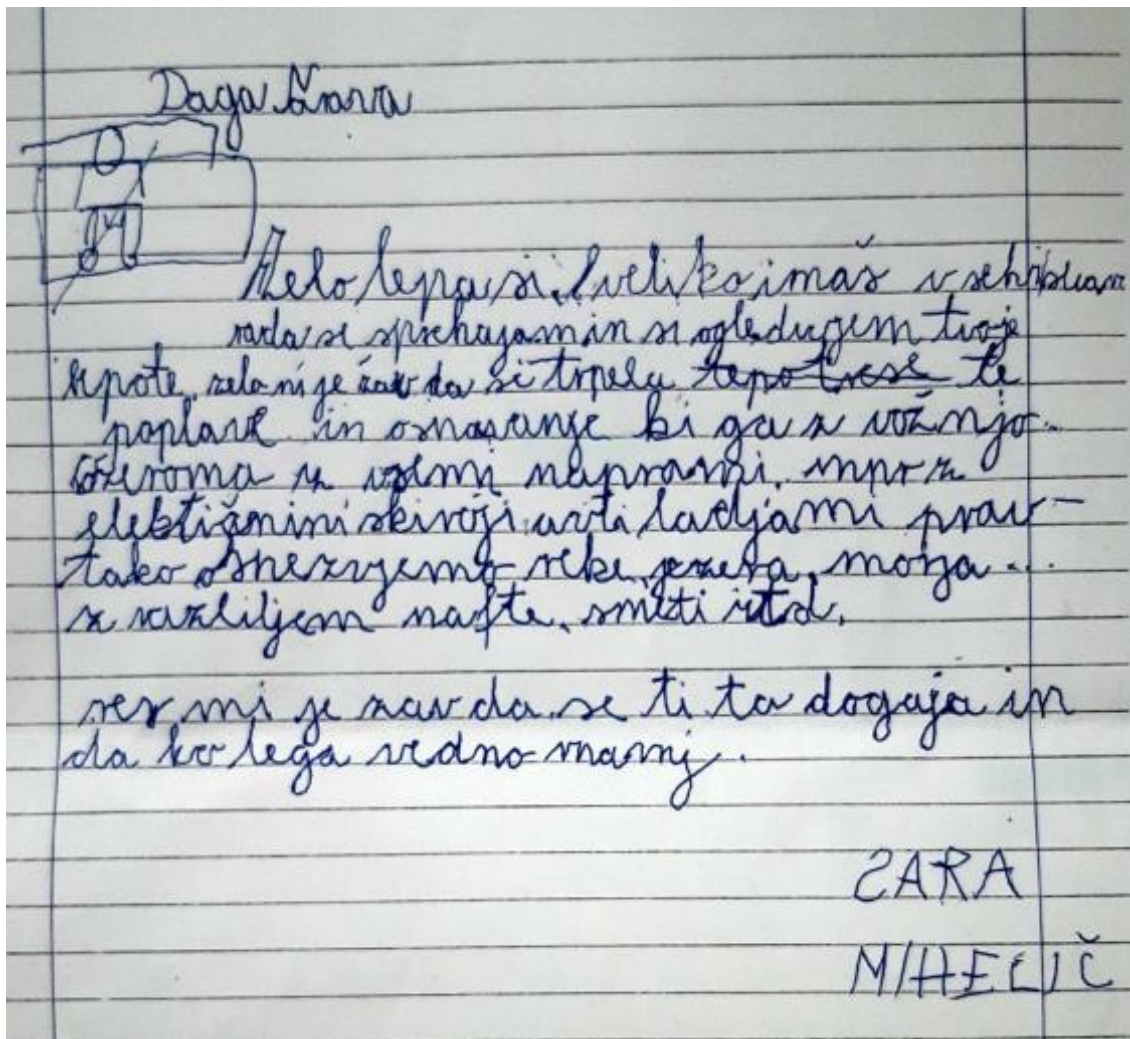 Daga Narva
Zelo lepa si, veliko imaš vseh
rada se sprehajam in si ogledujem tvoje
lepote, zelo mi je žav da si trpela te
poplave in onasanje bi ga z vožnjo
oziroma z vsemi napravami, inprz
elektičnimi skiroji avti ladjami prav-
tako onezujemo reke jezera, morja...
z razlitjem nafte, smeti itd.
res mi je zav da se ti ta dogaja in
da ko lega vedno manj.
ZARA
MIHELIČ